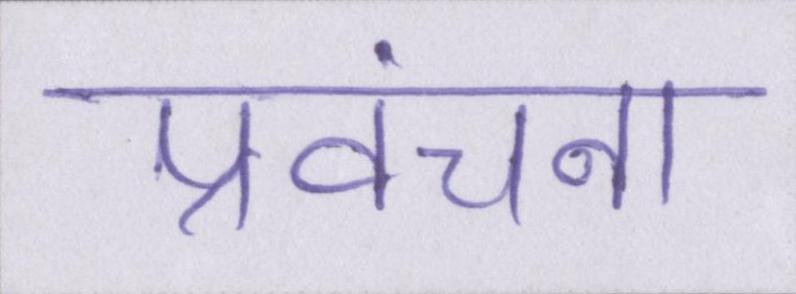 प्रवंचना